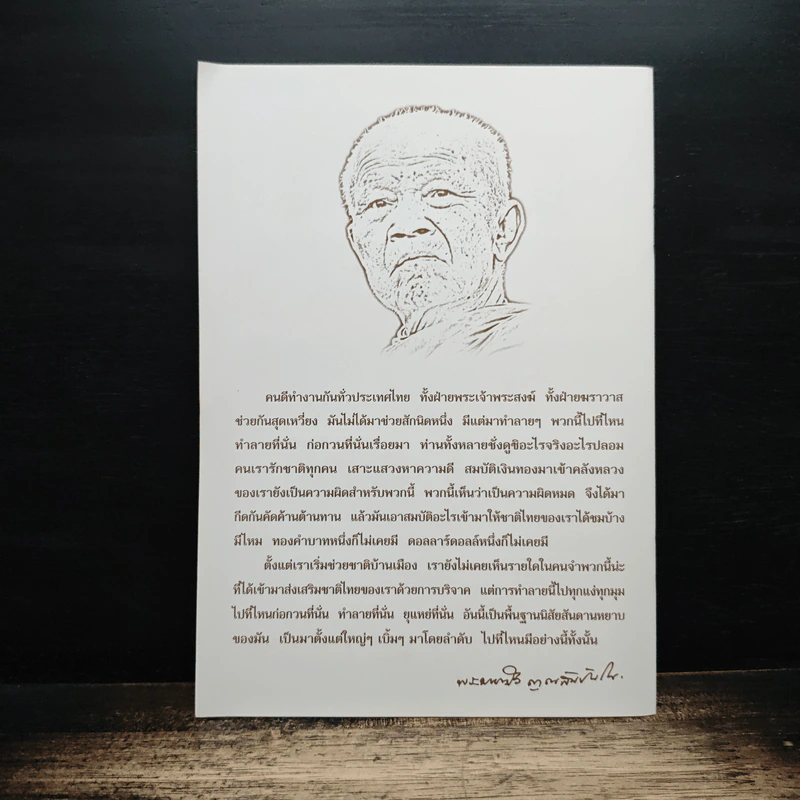 คนดีทำงานกันทั่วประเทศไทย ทั้งฝ่ายพระเจ้าพระสงฆ์ ทั้งฝ่ายฆราวาส
ช่วยกันสุดเหวี่ยง มันไม่ได้มาช่วยสักนิดหนึ่ง มีแต่มาทำลายๆ พวกนี้ไปที่ไหน
ทำลายที่นั่น ก่อกวนที่นั่นเรื่อยมา ท่านทั้งหลายชั่งดูซิอะไรจริงอะไรปลอม
คนเรารักชาติทุกคน เสาะแสวงหาความดี สมบัติเงินทองมาเข้าคลังหลวง
ของเรายังเป็นความผิดสำหรับพวกนี้ พวกนี้เห็นว่าเป็นความผิดหมด จึงได้มา
กีดกันคัดค้านต้านทาน แล้วมันเอาสมบัติอะไรเข้ามาให้ชาติไทยของเราได้ชมบ้าง
มีไหม ทองคำบาทหนึ่งก็ไม่เคยมี ดอลลาร์ดอลล์หนึ่งก็ไม่เคยมี
ตั้งแต่เราเริ่มช่วยชาติบ้านเมือง เรายังไม่เคยเห็นรายใดในคนจำพวกนี้น่ะ
ที่ได้เข้ามาส่งเสริมชาติไทยของเราด้วยการบริจาค แต่การทำลายนี้ไปทุกแง่ทุกมุม
ไปที่ไหนก่อกวนที่นั่น ทำลายที่นั่น ยุแหย่ที่นั่น อันนี้เป็นพื้นฐานนิสัยสันดานหยาบ
ของมัน เป็นมาตั้งแต่ใหญ่ๆ เบิ้มๆ มาโดยลำดับ ไปที่ไหนมีอย่างนี้ทั้งนั้น